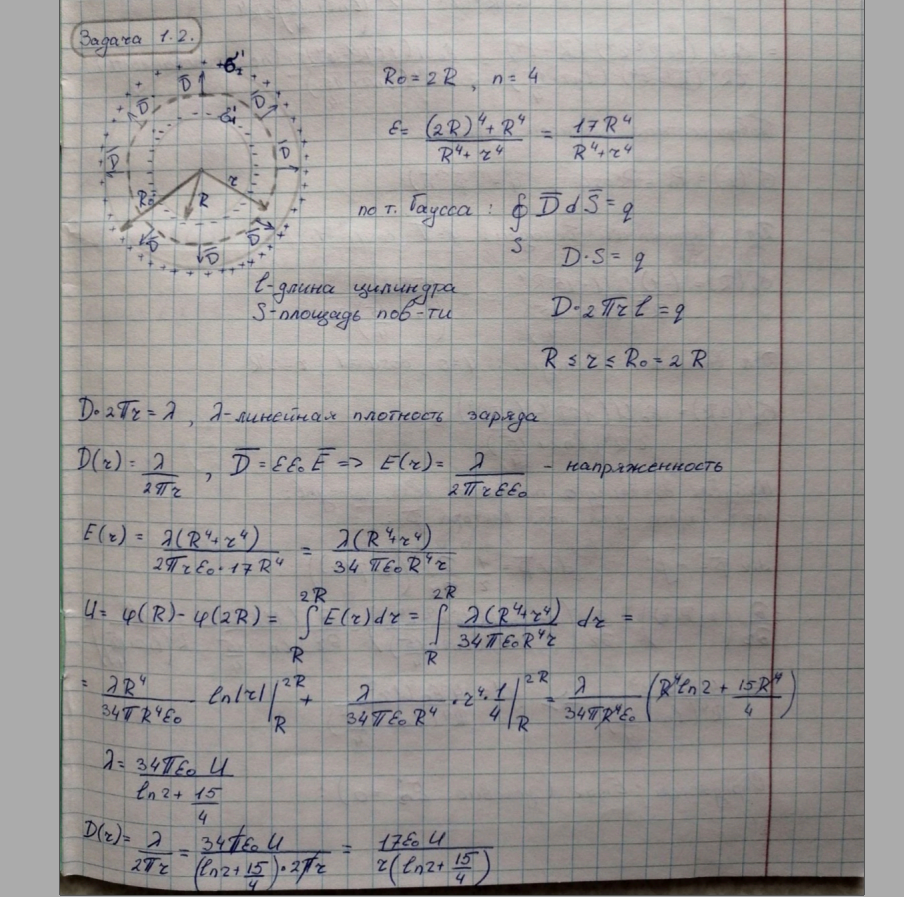 Задача 1.2.
+σ₂'
σ₁'
D̄ D̄ D̄
D̄ D̄
r
R₀ R
D̄ D̄ D̄
R₀ = 2R , n = 4
ε = ((2R)⁴ + R⁴)/(R⁴ + r⁴) = 17R⁴/(R⁴ + r⁴)
по т. Гаусса : ∮_S D̄ dS̄ = q
D · S = q
l - длина цилиндра
S - площадь пов-ти
D · 2πrl = q
R ≤ r ≤ R₀ = 2R
D · 2πr = λ , λ - линейная плотность заряда
D(r) = λ/(2πr) , D̄ = εε₀Ē => E(r) = λ/(2πrεε₀) - напряженность
E(r) = λ(R⁴ + r⁴)/(2πrε₀ · 17R⁴) = λ(R⁴ + r⁴)/(34πε₀R⁴r)
U = φ(R) - φ(2R) = ∫_R^2R E(r) dr = ∫_R^2R λ(R⁴ + r⁴)/(34πε₀R⁴r) dr =
= λR⁴/(34πR⁴ε₀) ln|r| |_R^2R + λ/(34πε₀R⁴) · r⁴ · 1/4 |_R^2R = λ/(34πR⁴ε₀) (R⁴ ln2 + 15R⁴/4)
λ = 34πε₀ U/(ln2 + 15/4)
D(r) = λ/(2πr) = 34πε₀ U/((ln2 + 15/4) · 2πr) = 17ε₀ U/(r(ln2 + 15/4))